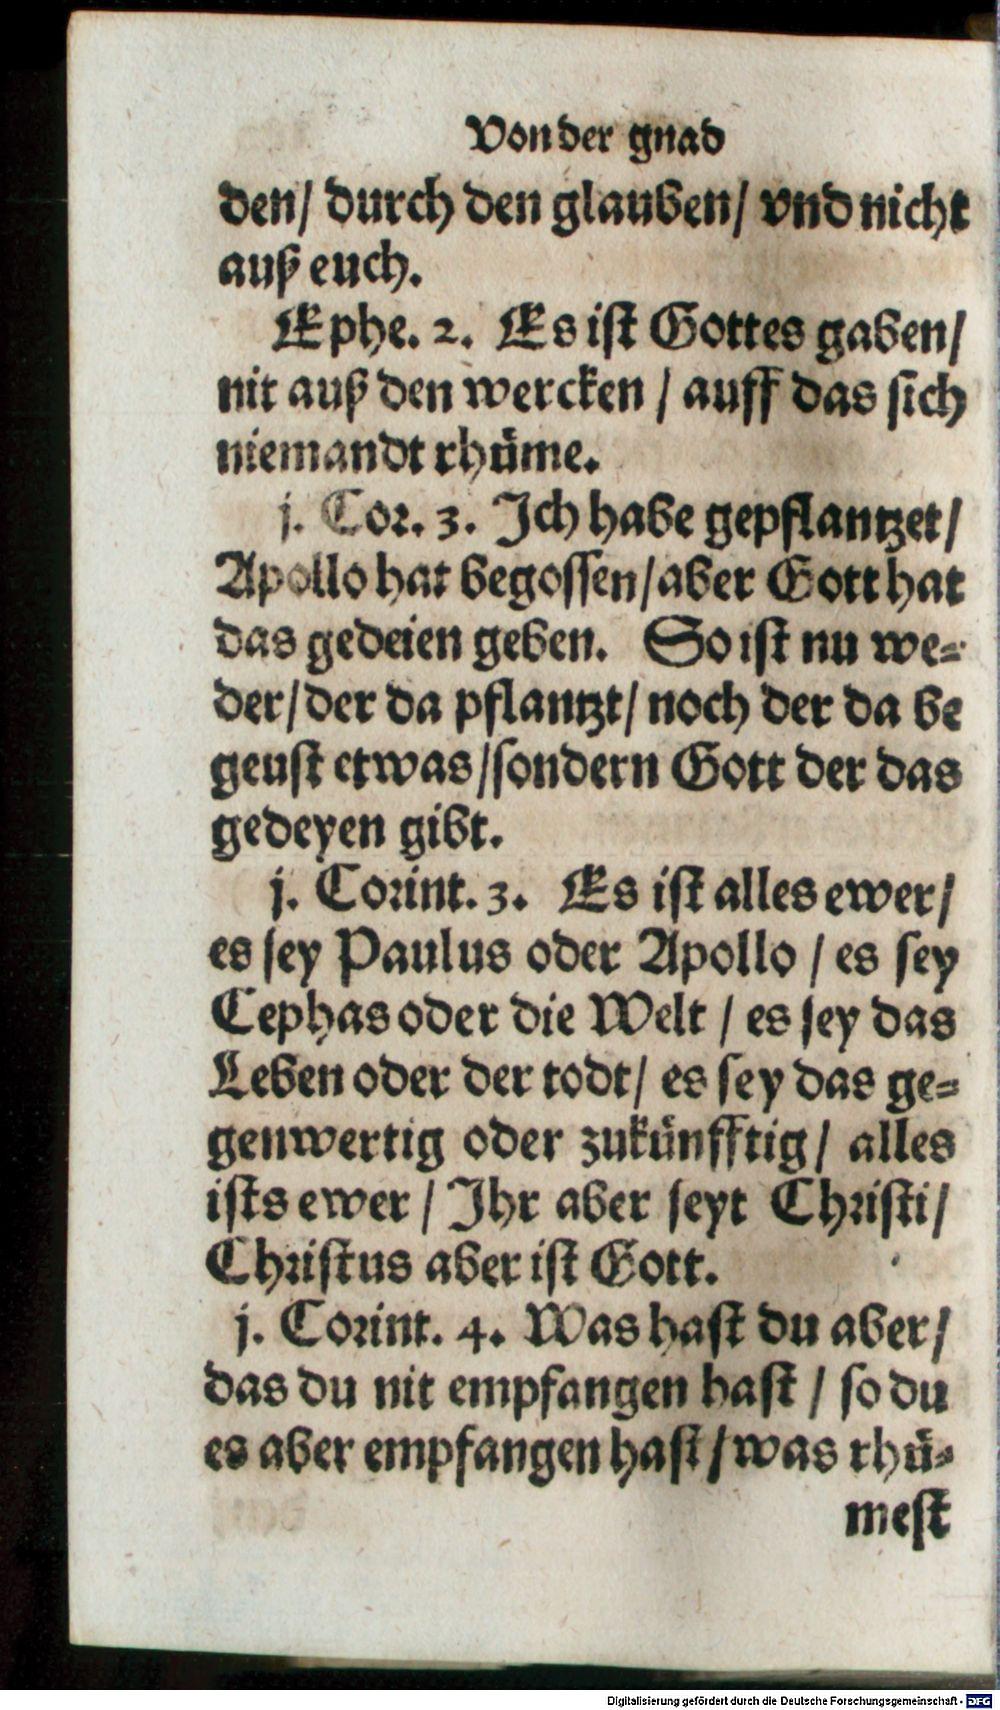 Von der gnad
den/ durch den glauben/ vnd nicht
auß euch.
Ephe. 2. Es ist Gottes gaben/
nit auß den wercken / auff das sich
niemandt rhüme.
j. Cor. 3. Ich habe gepflantzet/
Apollo hat begossen/aber Gott hat
das gedeien geben. So ist nu we-
der/der da pflantzt/ noch der da be
geust etwas/sondern Gott der das
gedeyen gibt.
j. Corint. 3. Es ist alles ewer/
es sey Paulus oder Apollo / es sey
Cephas oder die Welt / es sey das
Leben oder der todt/ es sey das ge-
genwertig oder zukünfftig/ alles
ists ewer / Ihr aber seyt Christi/
Christus aber ist Gott.
j. Corint. 4. Was hast du aber/
das du nit empfangen hast / so du
es aber empfangen hast/was rhü-
mest
Digitalisierung gefördert durch die Deutsche Forschungsgemeinschaft - DFG